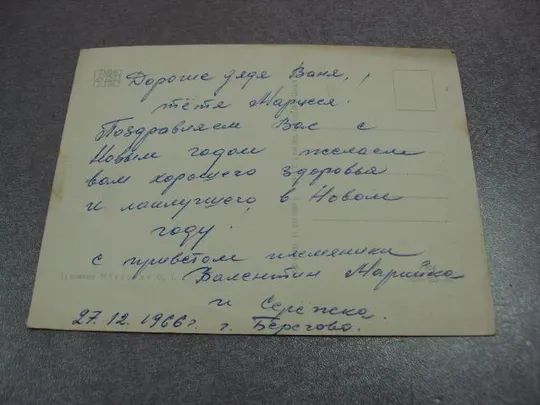 Дорогие дядя Ваня,
тётя Маруся!
Поздравляем Вас с
Новым годом желаем
вам хорошего здоровья
и наилучшего в Новом
году!
с приветом племяники
Валентин Марийка
и Сережка.
27.12.1966г. г. Берегово.